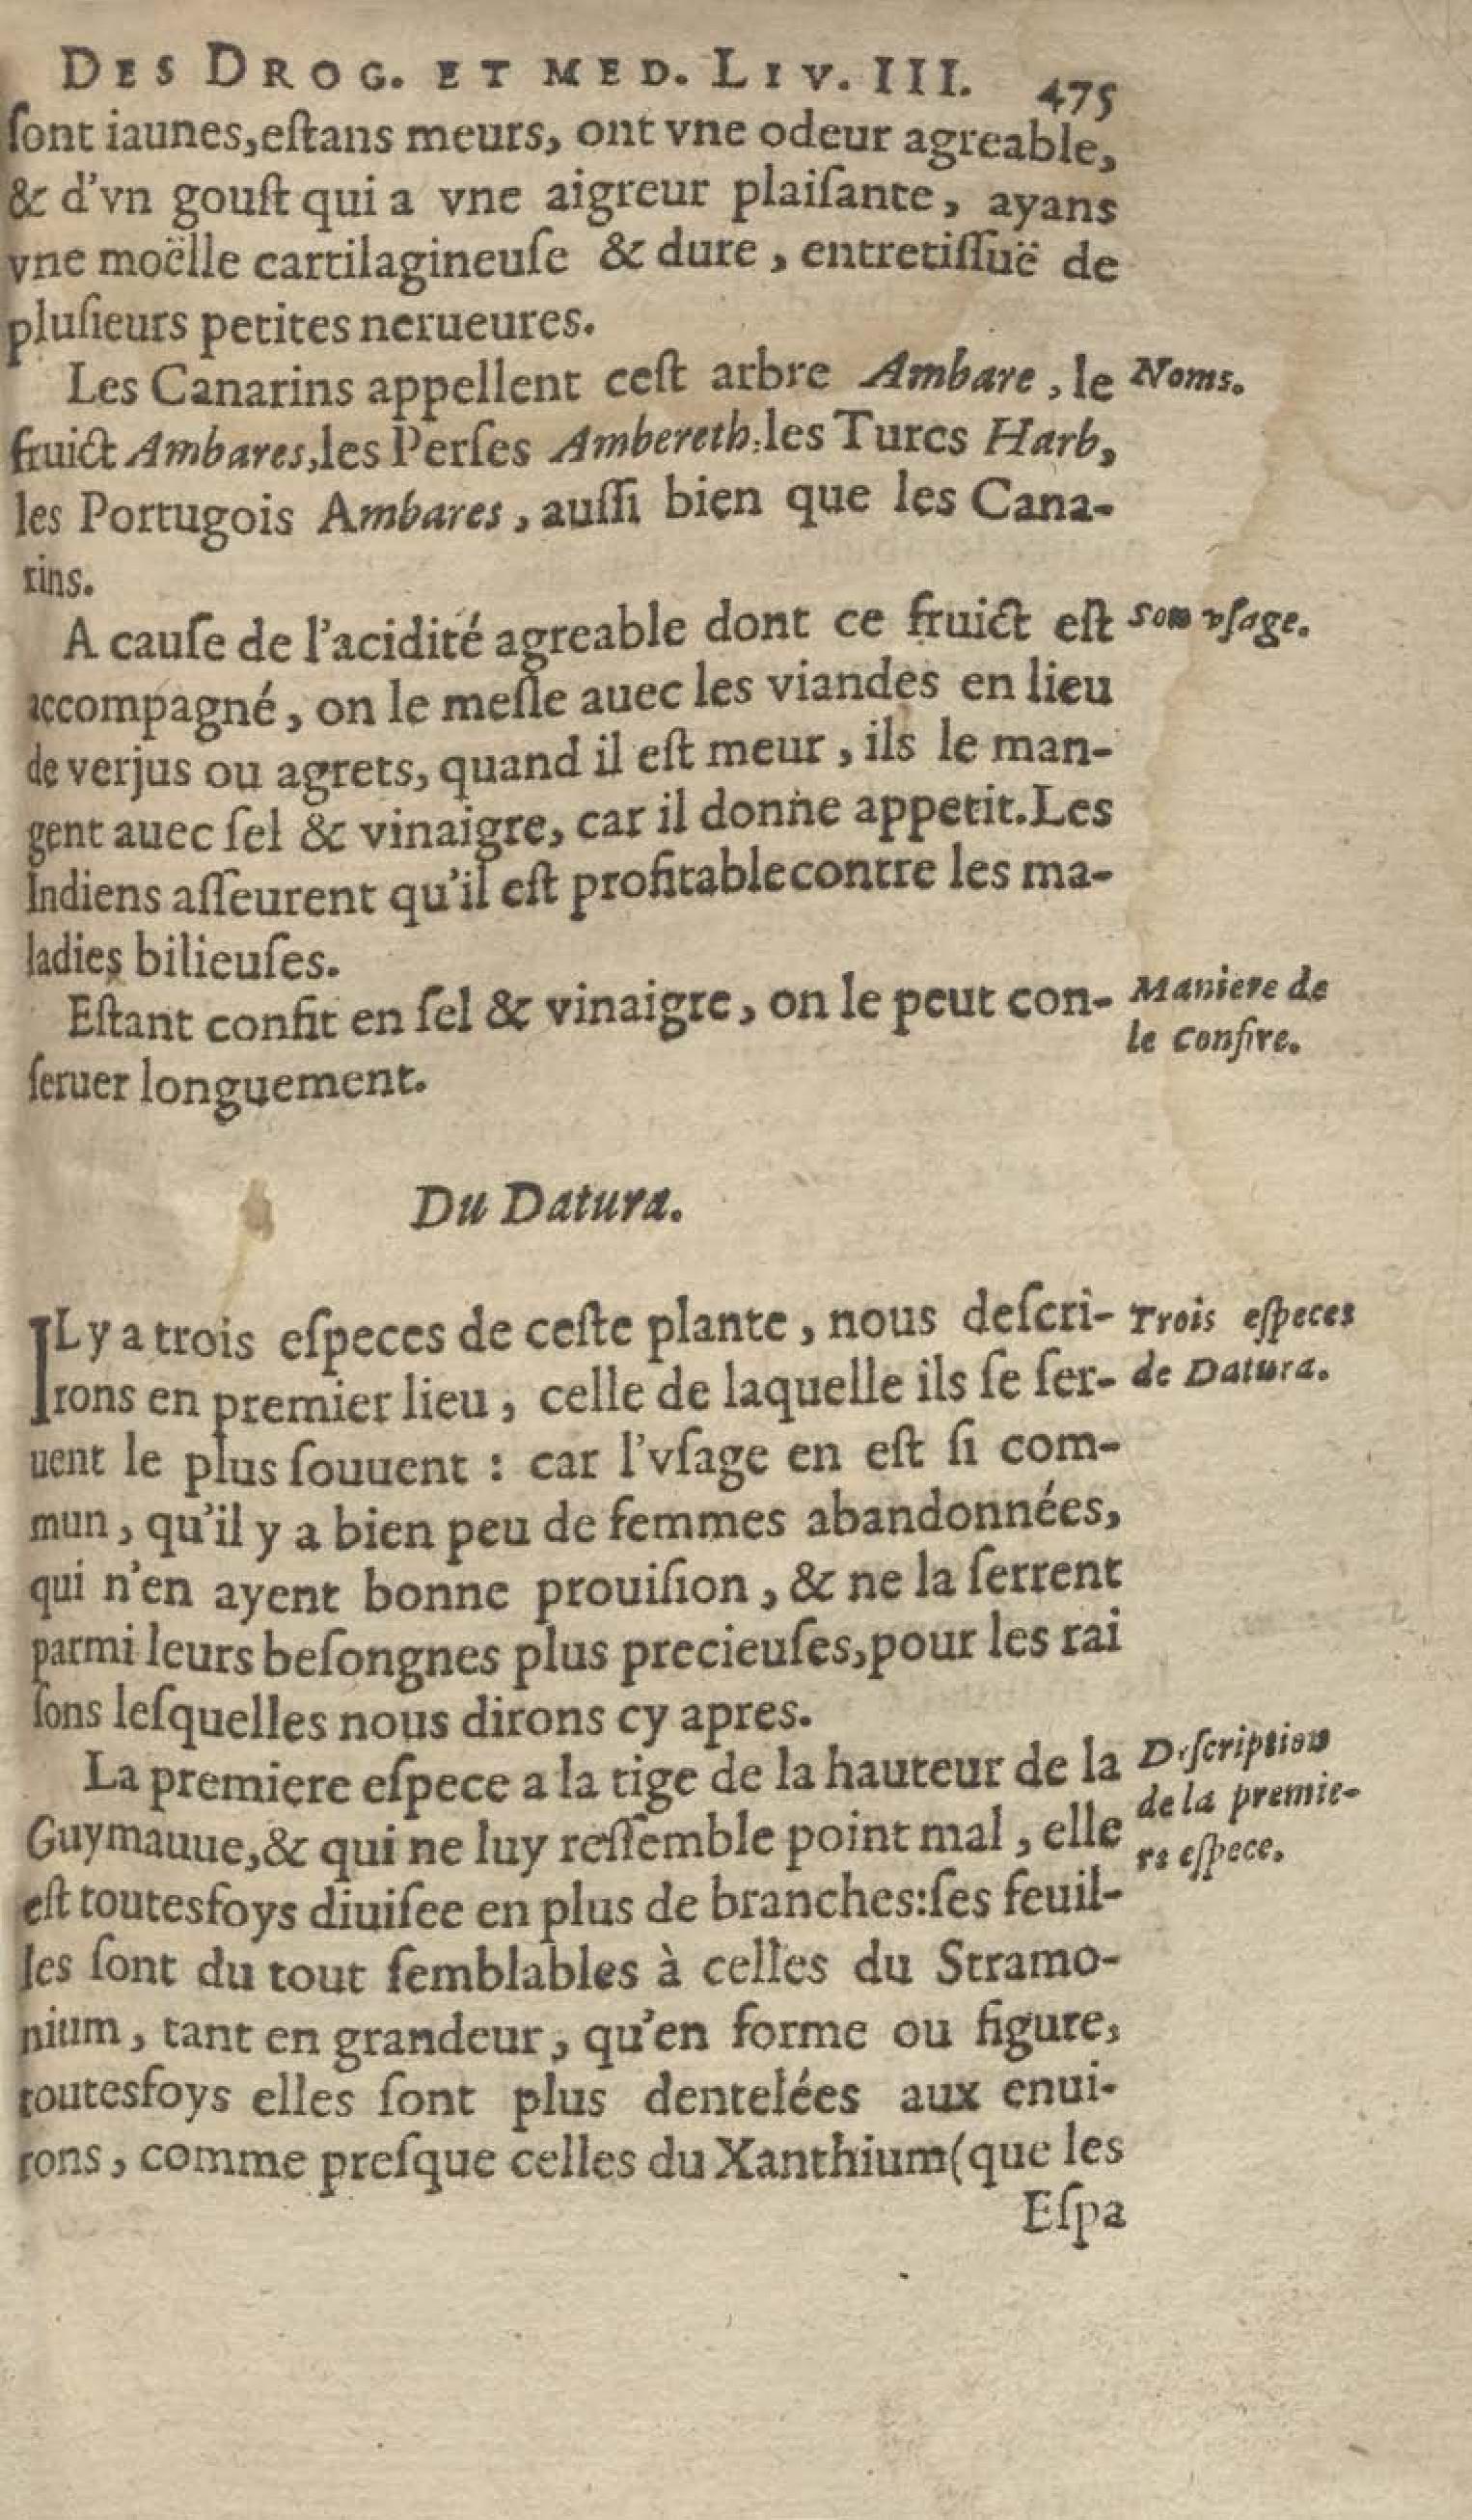 DES DROG. ET MED. LIV. III. 475
ſont iaunes,eſtans meurs, ont vne odeur agreable,
& d'vn gouſt qui a vne aigreur plaiſante, ayans
vne moëlle cartilagineuſe & dure, entretiſſuë de
pluſieurs petites nerueures.
Les Canarins appellent ceſt arbre Ambare, le
Noms.
fruict Ambares,les Perſes Ambereth:les Turcs Harb,
les Portugois Ambares, auſſi bien que les Cana-
rins.
A cauſe de l'acidité agreable dont ce fruict eſt
Son vſage.
accompagné, on le meſle auec les viandes en lieu
de verjus ou agrets, quand il eſt meur, ils le man-
gent auec ſel & vinaigre, car il donne appetit.Les
Indiens aſſeurent qu'il eſt profitable contre les ma-
ladies bilieuſes.
Eſtant confit en ſel & vinaigre, on le peut con-
Maniere de
le confire.
ſeruer longuement.
Du Datura.
IL y a trois eſpeces de ceſte plante, nous deſcri-
Trois eſpeces
rons en premier lieu, celle de laquelle ils ſe ſer-
de Datura.
uent le plus ſouuent : car l'vſage en eſt ſi com-
mun, qu'il y a bien peu de femmes abandonnées,
qui n'en ayent bonne prouiſion, & ne la ſerrent
parmi leurs beſongnes plus precieuſes,pour les rai
ſons leſquelles nous dirons cy apres.
La premiere eſpece a la tige de la hauteur de la
Deſcription
de la premie-
re eſpece.
Guymauue,& qui ne luy reſſemble point mal, elle
eſt toutesfoys diuiſee en plus de branches:ſes feuil-
les ſont du tout ſemblables à celles du Stramo-
nium, tant en grandeur, qu'en forme ou figure,
toutesfoys elles ſont plus dentelées aux enui-
rons, comme preſque celles du Xanthium(que les
Eſpa